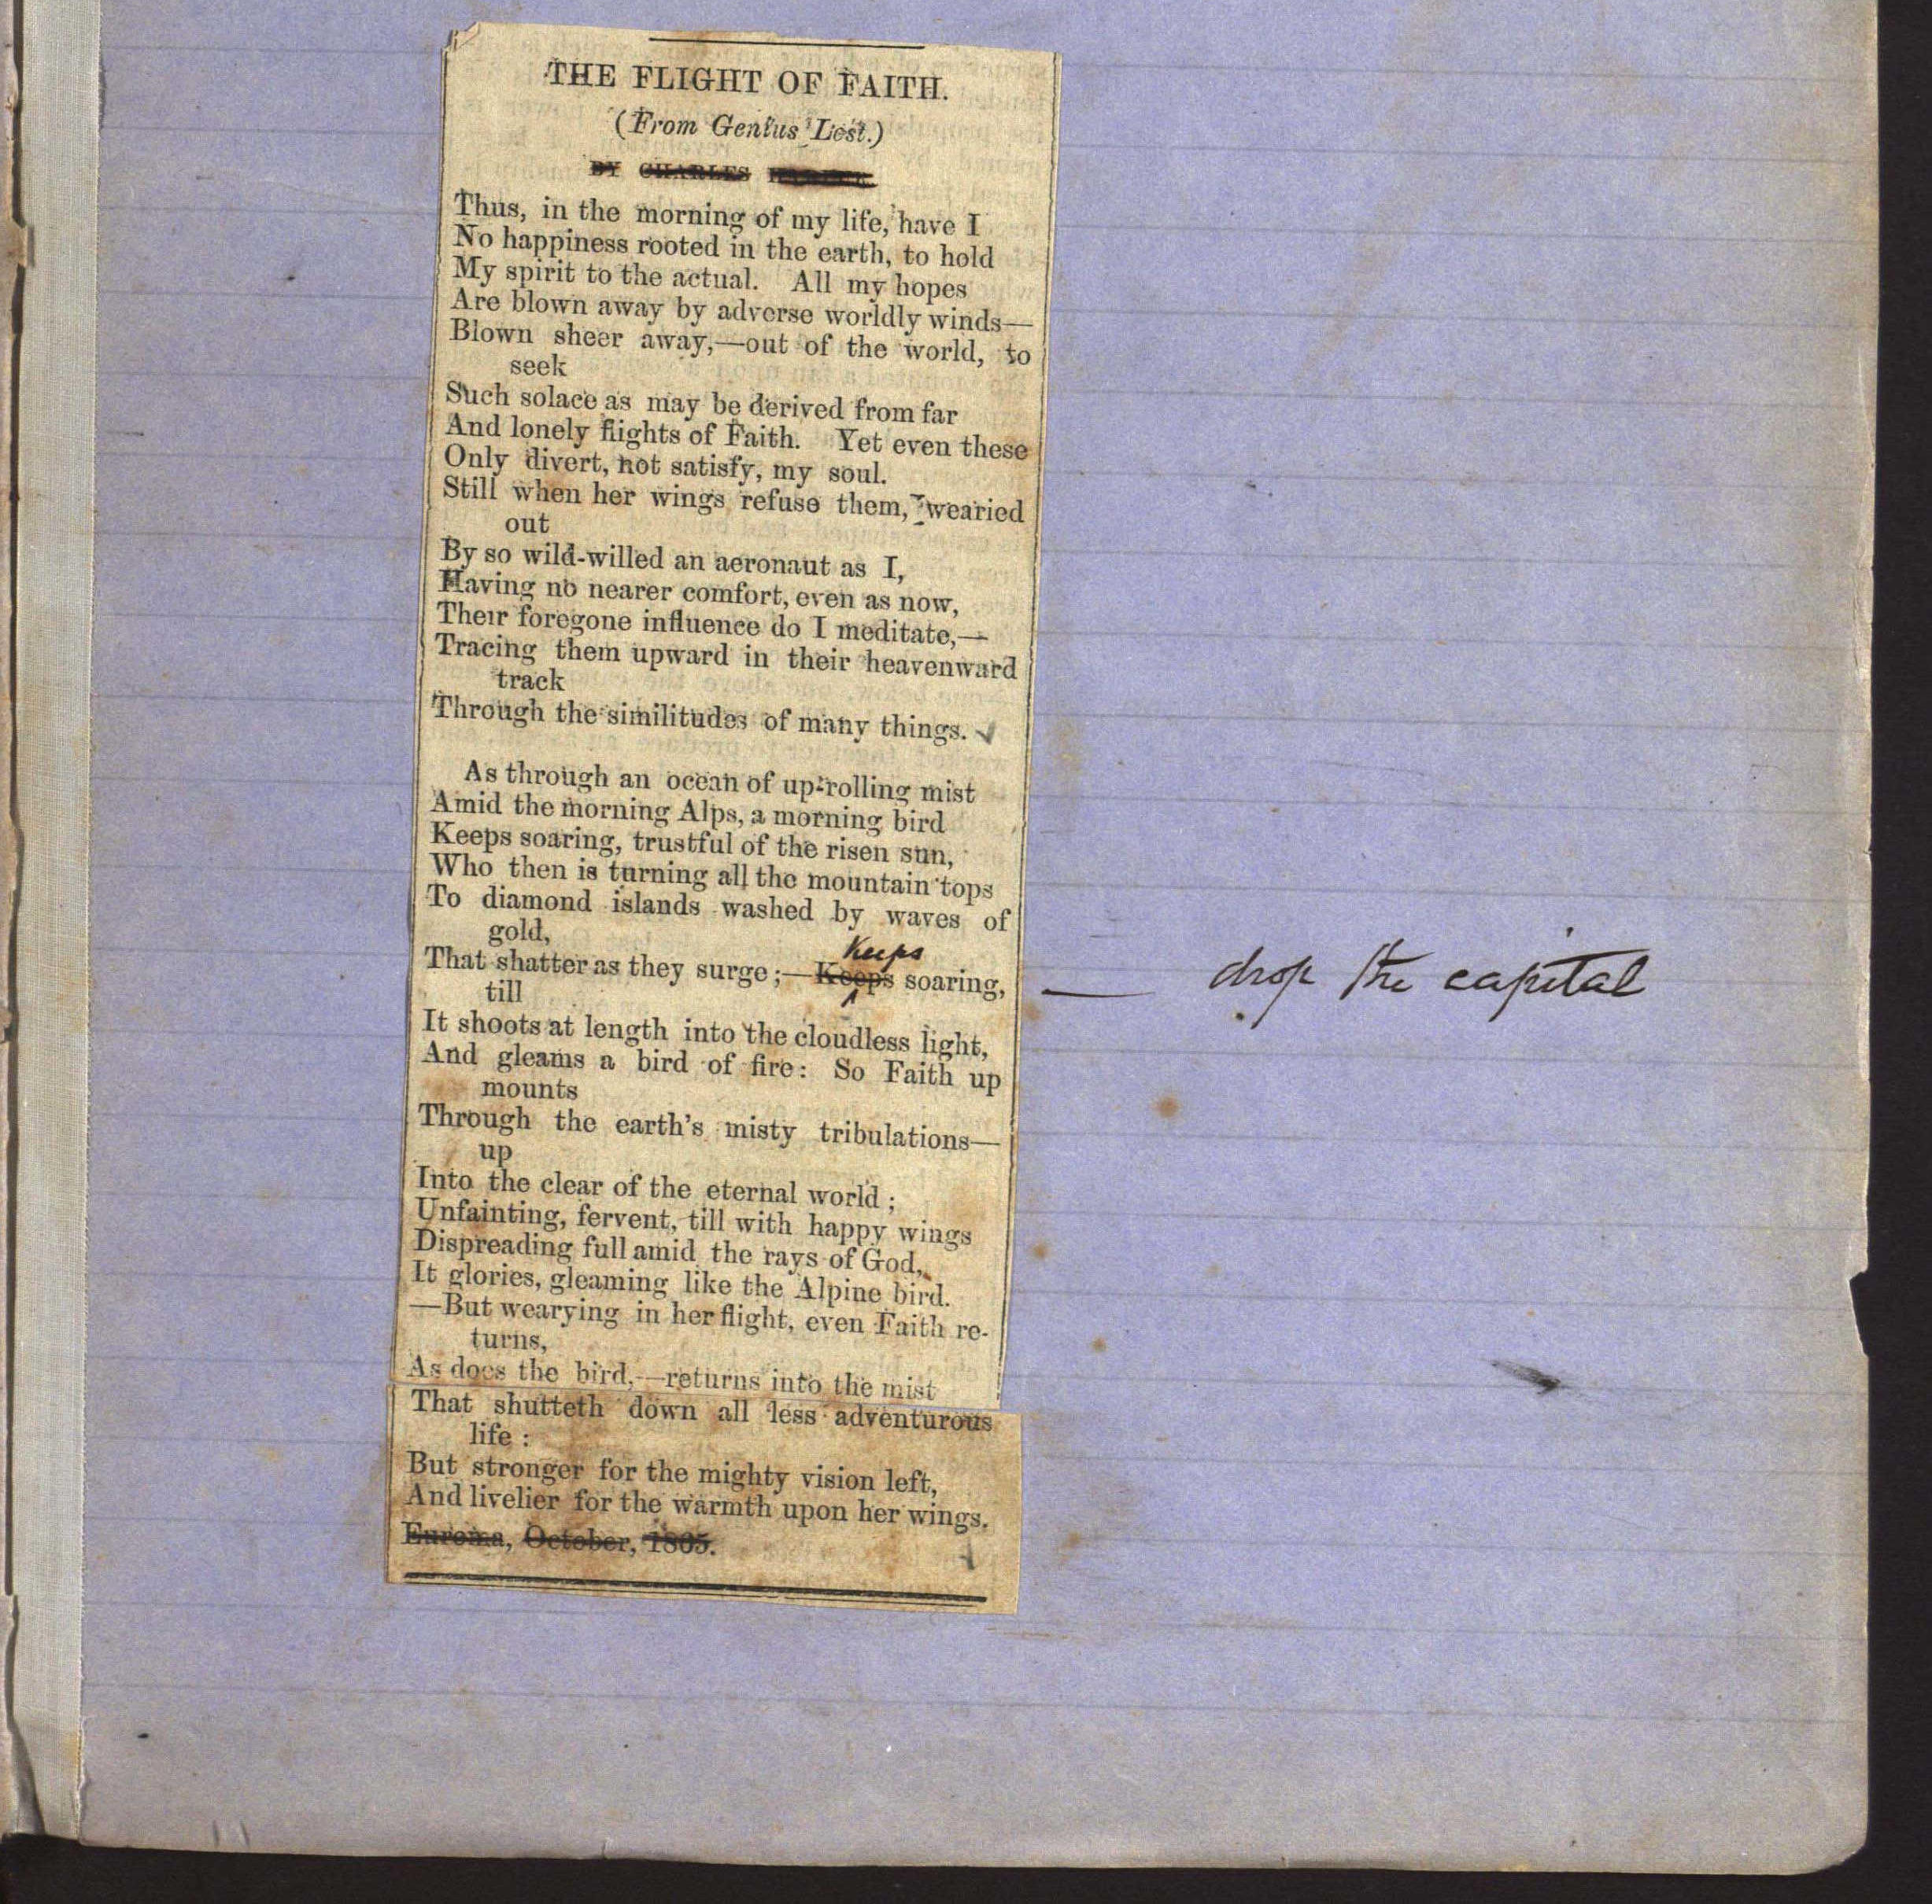 THE FLIGHT OF FAITH.
(From Genius Lost.)
BY CHARLES
Thus, in the morning of my life, have I
No happiness rooted in the earth, to hold
My spirit to the actual. All my hopes
Are blown away by adverse worldly winds—
Blown sheer away,—out of the world, to
seek
Such solace as may be derived from far
And lonely flights of Faith. Yet even these
Only divert, not satisfy, my soul.
Still when her wings refuse them, wearied
out
By so wild-willed an aeronaut as I,
Having no nearer comfort, even as now,
Their foregone influence do I meditate,—
Tracing them upward in their heavenward
track
Through the similitudes of many things.
As through an ocean of up-rolling mist
Amid the morning Alps, a morning bird
Keeps soaring, trustful of the risen sun,
Who then is turning all the mountain tops
To diamond islands washed by waves of
gold,
keeps
That shatter as they surge;—Keeps soaring,
till
drop the capital
It shoots at length into the cloudless light,
And gleams a bird of fire: So Faith up
mounts
Through the earth's misty tribulations—
up
Into the clear of the eternal world;
Unfainting, fervent, till with happy wings
Dispreading full amid the rays of God,
It glories, gleaming like the Alpine bird.
—But wearying in her flight, even Faith re-
turns,
As does the bird,—returns into the mist
That shutteth down all less adventurous
life:
But stronger for the mighty vision left,
And livelier for the warmth upon her wings.
Euroma, October, 1865.